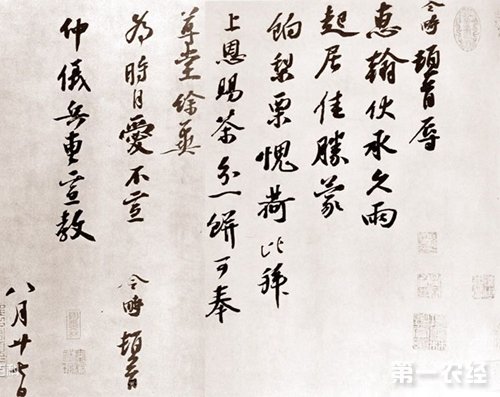 令畤頓首辱
惠翰伏承久雨
起居佳勝蒙
餉梨栗愧荷比拜
上恩賜茶分一餅可奉
尊堂餘冀
為時自愛不宣 令畤頓首
仲儀兵曹宣教
八月廿七日
第一农经